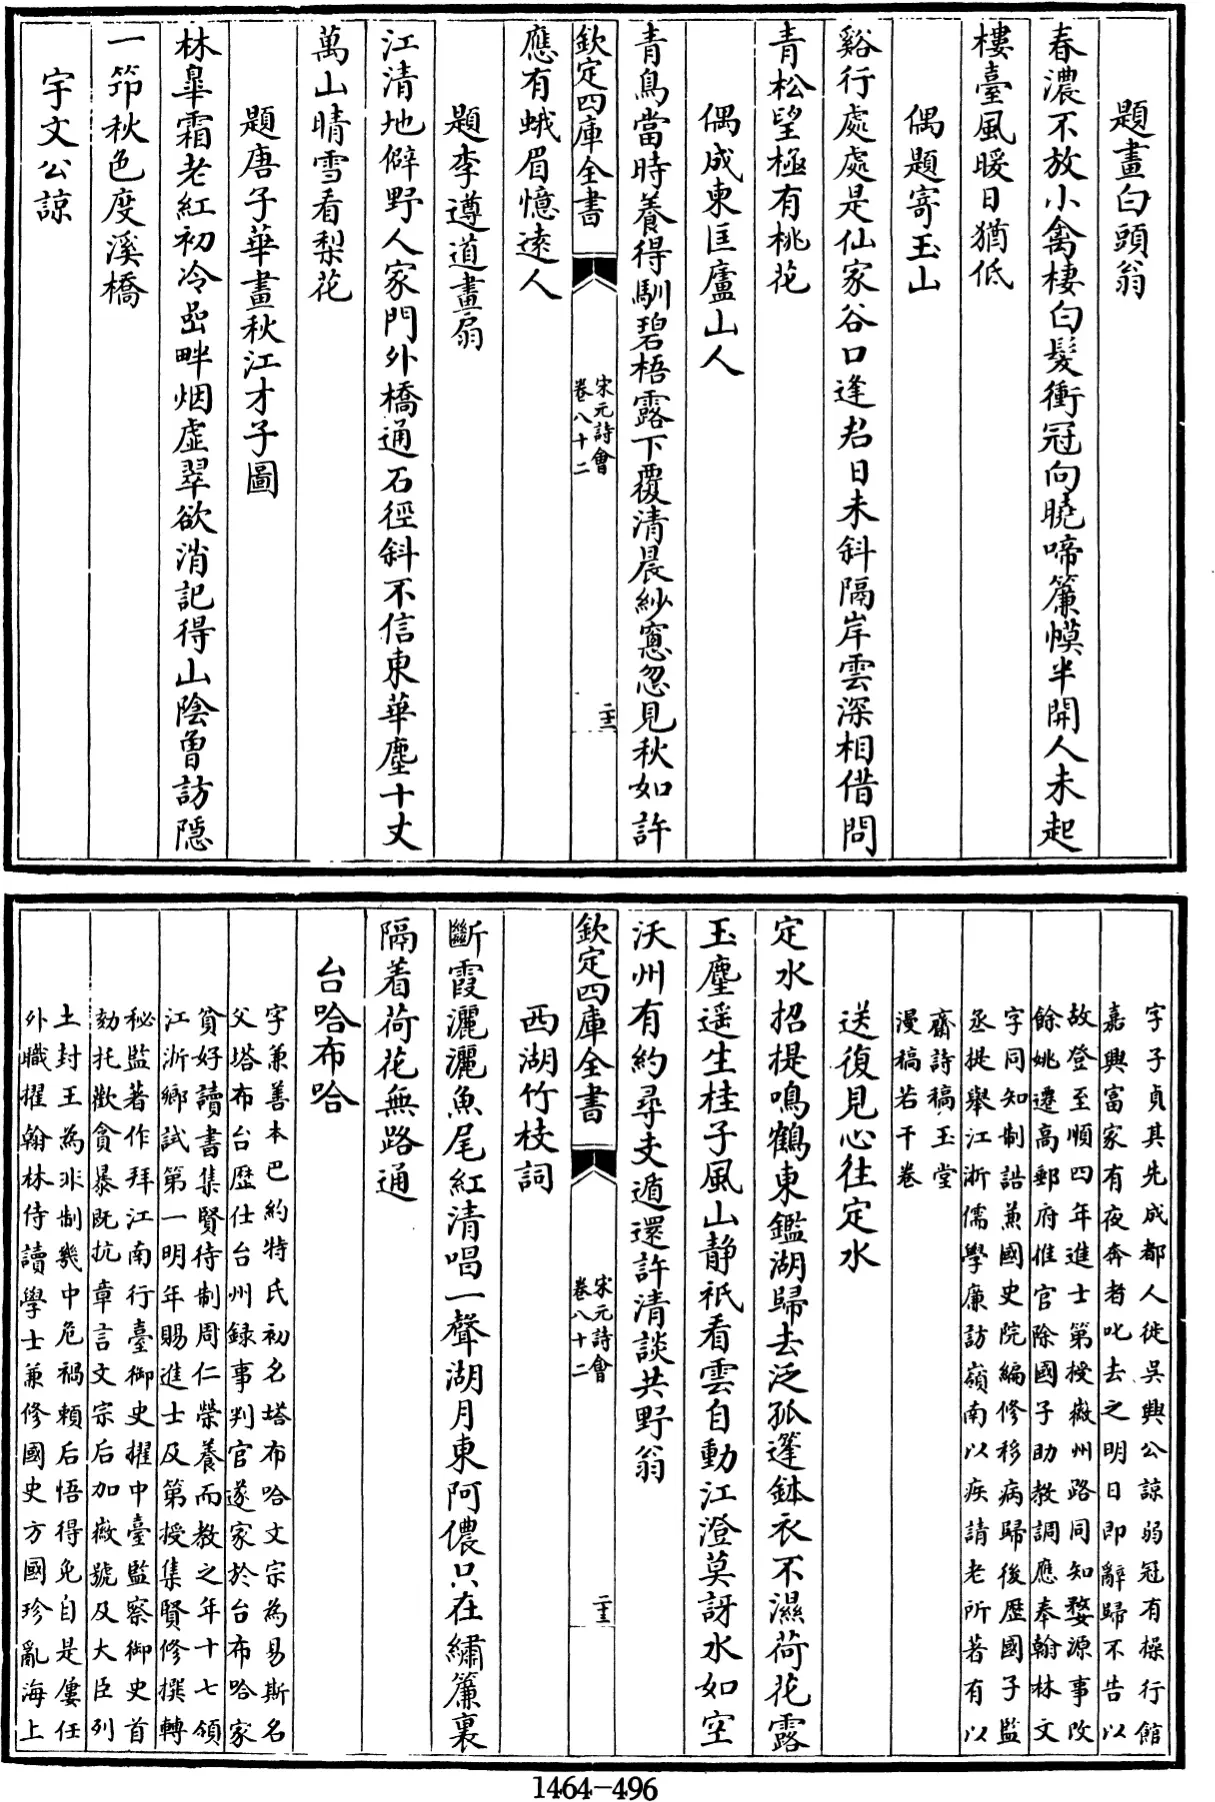 題畫白頭翁
春濃不放小禽棲白髮衝冠向曉啼簾幙半開人未起
樓臺風暖日猶低
偶題寄玉山
谿行處處是仙家谷口逢君日未斜隔岸雲深相借問
青松望極有桃花
偶成柬匡廬山人
青鳥當時養得馴碧梧露下覆清晨紗窻忽見秋如許
欽定四庫全書
宋元詩會
卷八十二
二十三
應有蛾眉憶遠人
題李遵道畫扇
江清地僻野人家門外橋通石徑斜不信東華塵十丈
萬山晴雪看梨花
題唐子華畫秋江才子圖
林臯霜老紅初冷嵒畔烟虚翠欲消記得山陰曽訪隠
一笻秋色度溪橋
宇文公諒
字子貞其先成都人徙吳興公諒弱冠有操行館
嘉興富家有夜奔者叱去之明日即辭歸不告以
故登至順四年進士第授徽州路同知婺源事改
餘姚遷高郵府推官除國子助教調應奉翰林文
字同知制誥兼國史院編修移病歸後歴國子監
丞提舉江浙儒學廉訪嶺南以疾請老所著有以
齋詩稿玉堂
漫稿若干卷
送復見心往定水
定水招提鳴鶴東鑑湖歸去泛孤篷鉢衣不濕荷花露
玉麈遥生桂子風山静祇看雲自動江澄莫訝水如空
沃州有約尋支遁還許清談共野翁
欽定四庫全書
宋元詩會
卷八十二
二十三
西湖竹枝詞
斷霞灑灑魚尾紅清唱一聲湖月東阿儂只在繡簾裏
隔着荷花無路通
台哈布哈
字兼善本巴約特氏初名塔布哈文宗為易斯名
父塔布台歴仕台州録事判官遂家於台布哈家
貧好讀書集賢待制周仁榮養而教之年十七領
江浙鄉試第一明年賜進士及第授集賢修撰轉
秘監著作拜江南行臺御史擢中臺監察御史首
劾托歡貪暴既抗章言文宗后加徽號及大臣列
土封王為非制幾中危禍賴后悟得免自是屢任
外職擢翰林侍讀學士兼修國史方國珍亂海上
1464-496